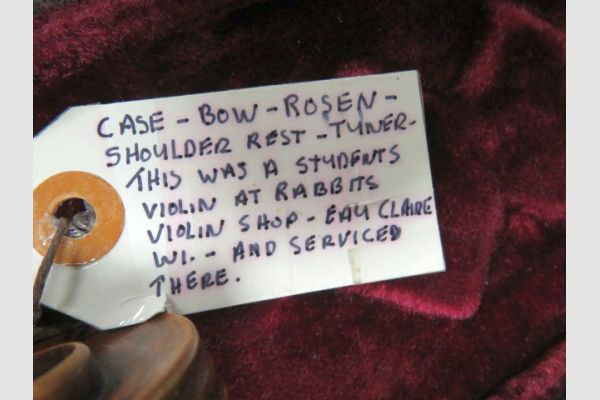 CASE - BOW - ROSEN -
SHOULDER REST - TUNER -
THIS WAS A STUDENTS
VIOLIN AT RABBITS
VIOLIN SHOP - EAU CLAIRE
WI. - AND SERVICED
THERE.